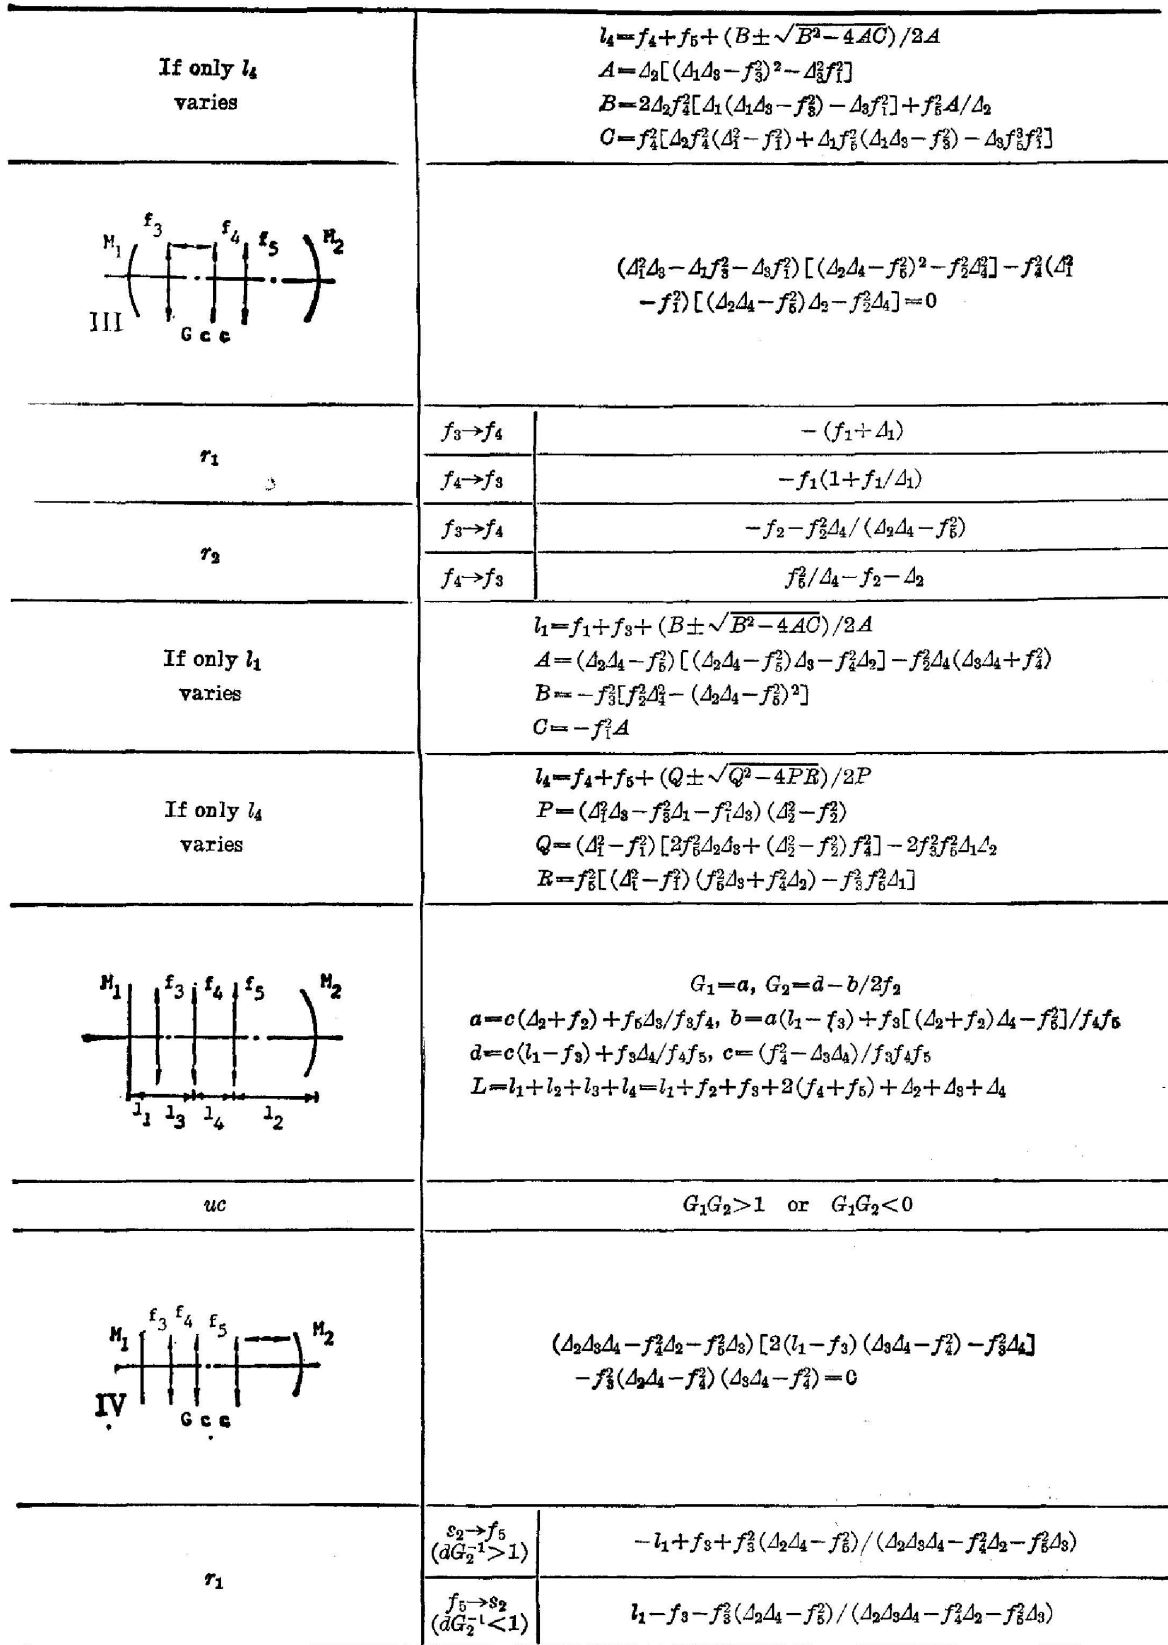 If only l₄
varies
l₄=f₄+f₅+(B±√(B²−4AC))/2A
A=Δ₂[(Δ₁Δ₃−f₃²)²−Δ₃²f₁²]
B=2Δ₂f₄²[Δ₁(Δ₁Δ₃−f₃²)−Δ₃f₁²]+f₅²A/Δ₂
C=f₄²[Δ₂f₄²(Δ₁²−f₁²)+Δ₁f₅²(Δ₁Δ₃−f₃²)−Δ₃f₅³f₁²]
M₁ f₃ f₄ f₅ M₂
III
G c c
(Δ₁²Δ₃−Δ₁f₃²−Δ₃f₁²)[(Δ₂Δ₄−f₅²)²−f₂²Δ₄²]−f₄²(Δ₁²
−f₁²)[(Δ₂Δ₄−f₅²)Δ₂−f₂²Δ₄]=0
r₁
f₃→f₄ −(f₁+Δ₁)
f₄→f₃ −f₁(1+f₁/Δ₁)
r₂
f₃→f₄ −f₂−f₂²Δ₄/(Δ₂Δ₄−f₅²)
f₄→f₃ f₅²/Δ₄−f₂−Δ₂
If only l₁
varies
l₁=f₁+f₃+(B±√(B²−4AC))/2A
A=(Δ₂Δ₄−f₅²)[(Δ₂Δ₄−f₅²)Δ₃−f₄²Δ₂]−f₂²Δ₄(Δ₃Δ₄+f₄²)
B=−f₃²[f₂²Δ₄²−(Δ₂Δ₄−f₅²)²]
C=−f₁²A
If only l₄
varies
l₄=f₄+f₅+(Q±√(Q²−4PR))/2P
P=(Δ₁²Δ₃−f₃²Δ₁−f₁²Δ₃)(Δ₂²−f₂²)
Q=(Δ₁²−f₁²)[2f₅²Δ₂Δ₃+(Δ₂²−f₂²)f₄²]−2f₃²f₅²Δ₁Δ₂
R=f₅²[(Δ₁²−f₁²)(f₅²Δ₃+f₄²Δ₂)−f₃²f₅²Δ₁]
M₁ f₃ f₄ f₅ M₂
l₁ l₃ l₄ l₂
G₁=a, G₂=d−b/2f₂
a=c(Δ₂+f₂)+f₅Δ₃/f₃f₄, b=a(l₁−f₃)+f₃[(Δ₂+f₂)Δ₄−f₅²]/f₄f₅
d=c(l₁−f₃)+f₃Δ₄/f₄f₅, c=(f₄²−Δ₃Δ₄)/f₃f₄f₅
L=l₁+l₂+l₃+l₄=l₁+f₂+f₃+2(f₄+f₅)+Δ₂+Δ₃+Δ₄
uc
G₁G₂>1 or G₁G₂<0
M₁ f₃ f₄ f₅ M₂
IV
G c c
(Δ₂Δ₃Δ₄−f₄²Δ₂−f₅²Δ₃)[2(l₁−f₃)(Δ₃Δ₄−f₄²)−f₃²Δ₄]
−f₃²(Δ₂Δ₄−f₄²)(Δ₃Δ₄−f₄²)=0
r₁
s₂→f₅
(dG₂⁻¹>1)
−l₁+f₃+f₃²(Δ₂Δ₄−f₅²)/(Δ₂Δ₃Δ₄−f₄²Δ₂−f₅²Δ₃)
f₅→s₂
(dG₂⁻¹<1)
l₁−f₃−f₃²(Δ₂Δ₄−f₅²)/(Δ₂Δ₃Δ₄−f₄²Δ₂−f₅²Δ₃)